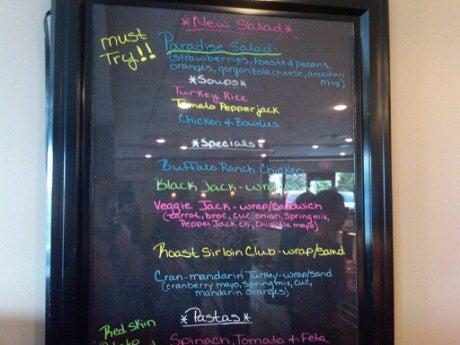 *New Salad*
must Try!!
Paradise Salad-
(strawberries, toasted pecans,
oranges, gorgonzola cheese, arcadian
mix)
*Soups*
Turkey Rice
Tomato Pepperjack
Chicken & Bowties
*Specials*
Buffalo Ranch Chicken
Black Jack-wrap
Veggie Jack-wrap/sandwich
(carrot, broc, cuc, onion, spring mix,
Pepper Jack ch, chipotle mayo)
Roast Sirloin Club-wrap/sand
Cran-mandarin Turkey-wrap/sand
(cranberry mayo, spring mix, cuc,
mandarin oranges)
*Pastas*
Red Skin
Spinach, Tomato & Feta